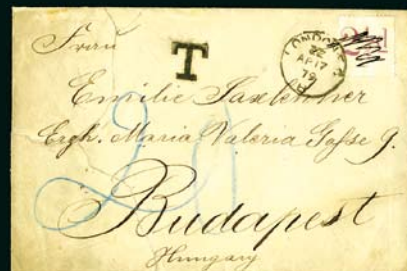 Frau
T
LONDON
22
AP 17
79
2½d
Emilie Saxlehner
Erzh. Maria Valeria Gasse 9.
20
Budapest
Hungary